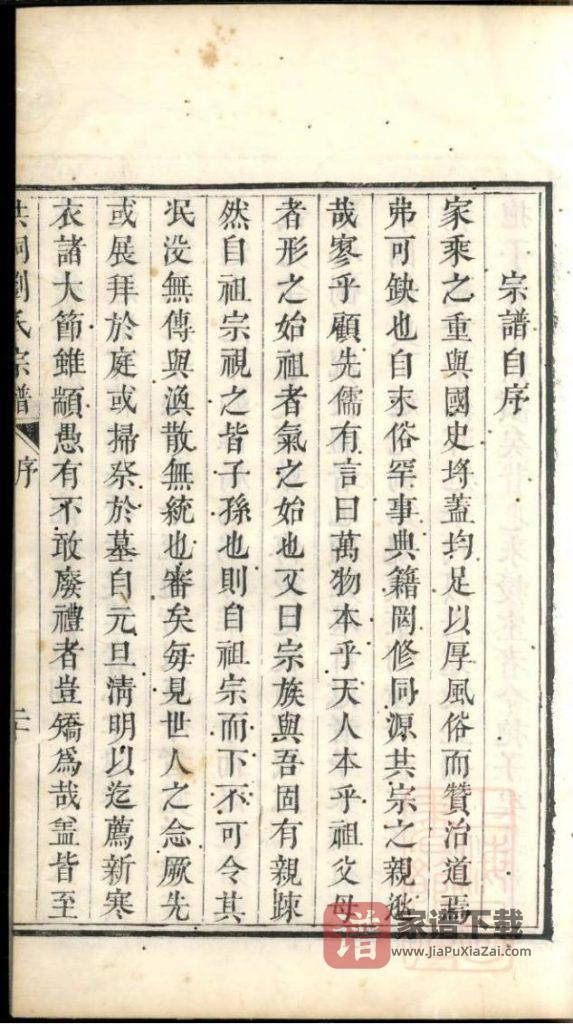 宗譜自序
家乘之重與國史埒蓋均足以厚風俗而贊治道焉
弗可缺也自末俗罕事典籍罔修同源共宗之親邈
哉寥乎顧先儒有言曰萬物本乎天人本乎祖父母
者形之始祖者氣之始也又曰宗族與吾固有親踈
然自祖宗視之皆子孫也則自祖宗而下不可令其
泯没無傳與渙散無統也審矣每見世人之念厥先
或展拜於庭或掃祭於墓自元旦淸明以迄薦新寒
衣諸大節雖顓愚有不敢廢禮者豈矯爲哉盖皆至
洪洞劉氏宗譜 序 二
譜 家谱下载
www.JiaPuXiaZai.com